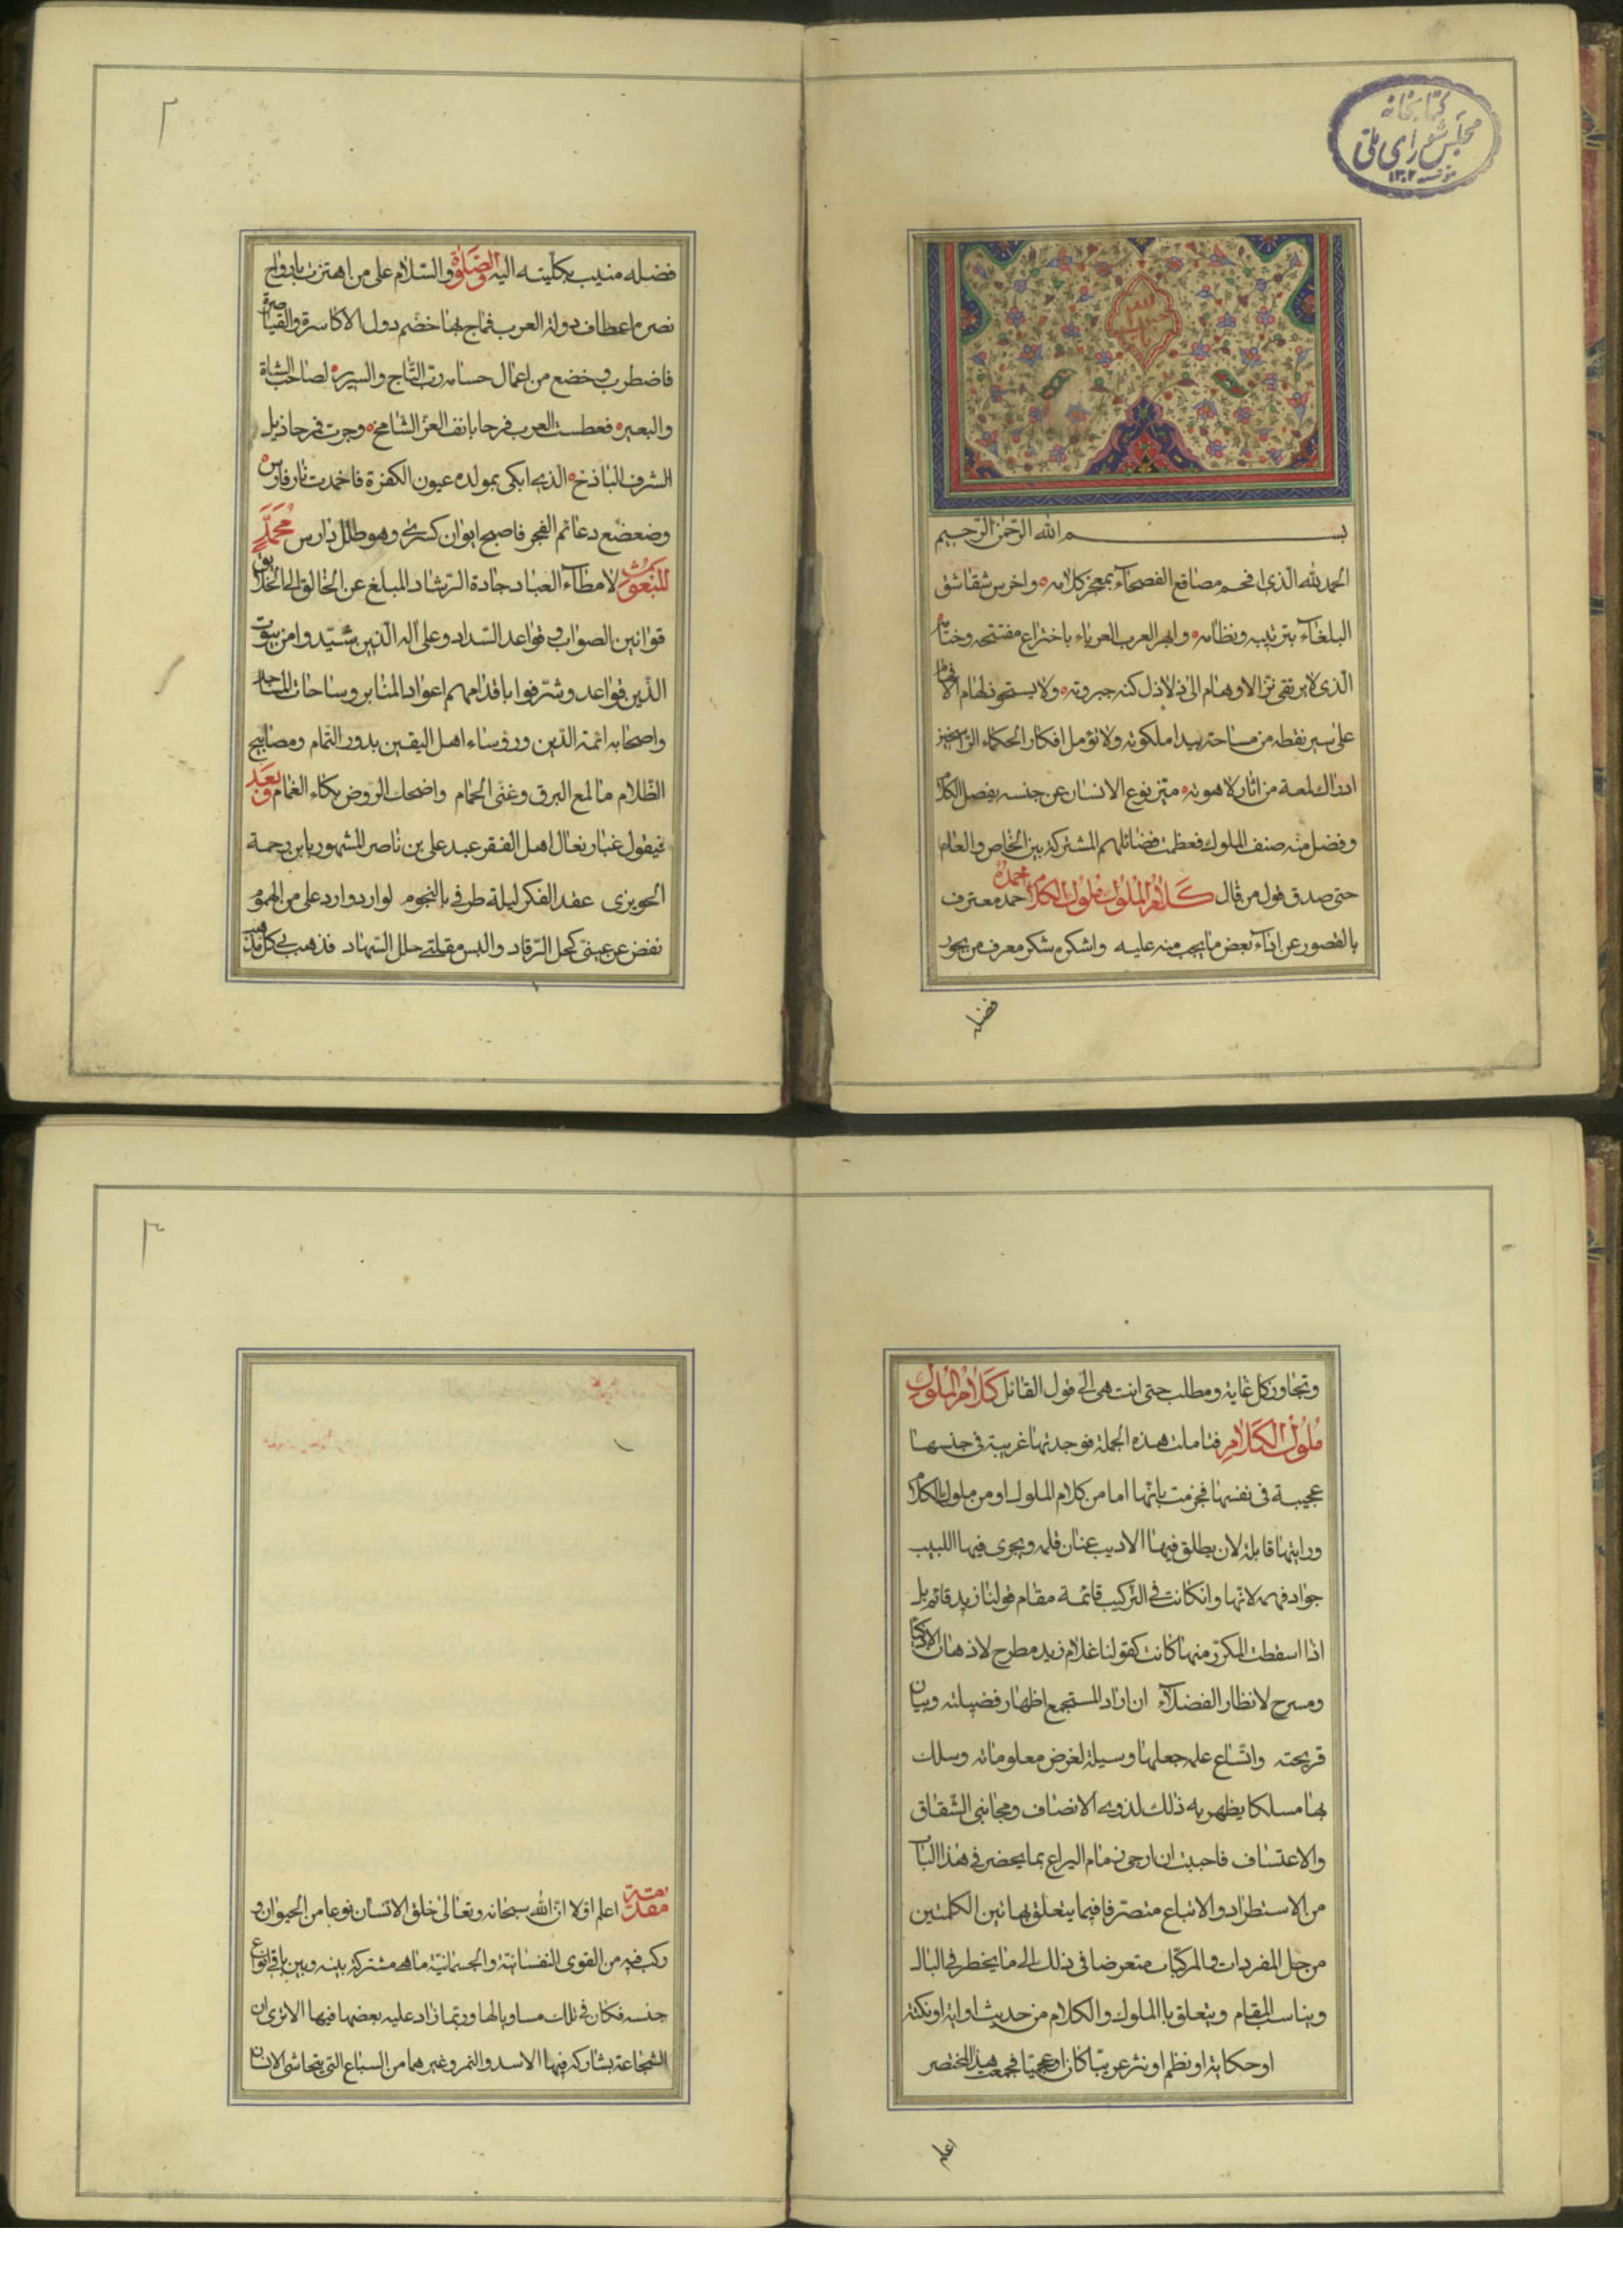 كتابخانه
مجلس شورای ملی
١٣٠٢
بسم الله الرحمن الرحيم
الحمد لله الذى افحم مصاقع الفصحآء بمعجز كلامه واخرس شقاشق
البلغآء بترتيبه ونظامه وابهر العرب العرباء باختراع مفتتحه وختامه
الّذى لا يرتقى الاوهام الى كنه جبروته ولا يستحوذ
على سير نقطه من مساحة بيدا ملكوته ولا تؤمل افكار الحكماء
ادراك لمعة من اثار لاهوته ميّز نوع الانسان عن جنسه بفصل الكلام
وفضل منه صنف الملوك فعظمت فضائلهم المشتركة بين الخاص والعام
حتى صدق قول من قال كَلامُ المُلوكِ مُلوكُ الكَلامِ احمده حمد معترف
بالقصور عن ادآء بعض ما يجب منه عليه واشكره شكر معرف من بحور
فضله
٢
فضله منيب بكليته اليه والصّلوة والسّلام على من اهتزت بارواح
نصره اعطاف دولة العرب فماج بها خضم دول الاكاسرة والقياصرة
فاضطرب وخضع من اعمال حسامه ربّ التّاج والسيره لصاحب الشاة
والبعيره فعطست العرب فرحا بانف العزّ الشامخ وجرت مرحا ذيل
الشرف الباذخ الذى ابكى بمولده عيون الكفرة فاخمدت نار فارس
وضعضع دعائم الفجر فاصبح ايوان كسرى وهو طلل دارس مُحَمَّدٍ
المَبْعُوثِ لامطآء العباد جادة الرّشاد المبلغ عن الخالق الى الخلائق
قوانين الصواب وقواعد السّداد وعلى آله الّذين شيّدوا من بيوت
الدّين قواعد وشرّفوا باقدامهم اعواد المنابر وساحات المساجد
واصحابه ائمة الدّين ورؤساء اهل اليقين بدور التّمام ومصابيح
الظّلام ما لمع البرق وغنّى الحمام واضحك الرّوض بكاء الغمام وبَعد
فيقول غبار نعال اهل الفقر عبد على بن ناصر المشهور بابن رحمة
الحويزى عقد الفكر ليلة طرفى بالنجوم لوارد وارد على من الهموم
نفض عن عينىّ كحل الرّقاد والبس مقلتى حلل السّهاد فذهب بى كل مذهب
وتجاوز كل غاية ومطلب حتى انتهى الى قول القائل كَلامُ المُلوكِ
مُلُوكُ الكَلامِ فتاملت هذه الجملة فوجدتها غريبة فى جنسها
عجيبة فى نفسها فجزمت بانّها اما من كلام الملوك او من ملوك الكلام
ورايتها قابلة لان يطلق فيها الاديب عنان قلمه ويجرى فيها اللبيب
جواد فهمه لانّها وان كانت فى التّركيب قائمة مقام قولنا زيد قائم بل
اذا اسقطت المكرّر منها كانت كقولنا غلام زيد مطرح لاذهان
ومسرح لانظار الفضلآء ان اراد المستجمع اظهار فضيلته وبيان
قريحته واتّساع علمه جعلها وسيلة لغرض معلوماته وسلك
بها مسلكا يظهر به ذلك لذوى الانصاف ومجانبى الشّقاق
والاعتساف فاحببت ان ارخى زمام اليراع بما يحضر فى هذا الباب
من الاستطراد والاتباع متصرّفا فيما يتعلق بهاتين الكلمتين
من حيل المفردات والمركّبات متعرضا فى ذلك الى ما يخطر فى البال
ويناسب المقام ويتعلق بالملوك والكلام من حديث او اية او نكتة
او حكاية او نظم او نثر عربيّا كان او عجميّا فجمعت هذا المختصر
اعلم
٣
مقدّمة اعلم اوّلا انّ الله سبحانه وتعالى خلق الانسان نوعا من الحيوان و
ركب فيه من القوى النفسانيّة والجسمانيّة ما هى مشتركة بينه وبين باقى انواع
جنسه فكان فى تلك مساويا لها وربّما زاد عليه بعضها فيها الا ترى ان
الشجاعة يشاركه فيها الاسد والنمر وغيرهما من السباع التى يتحاشى الانسان